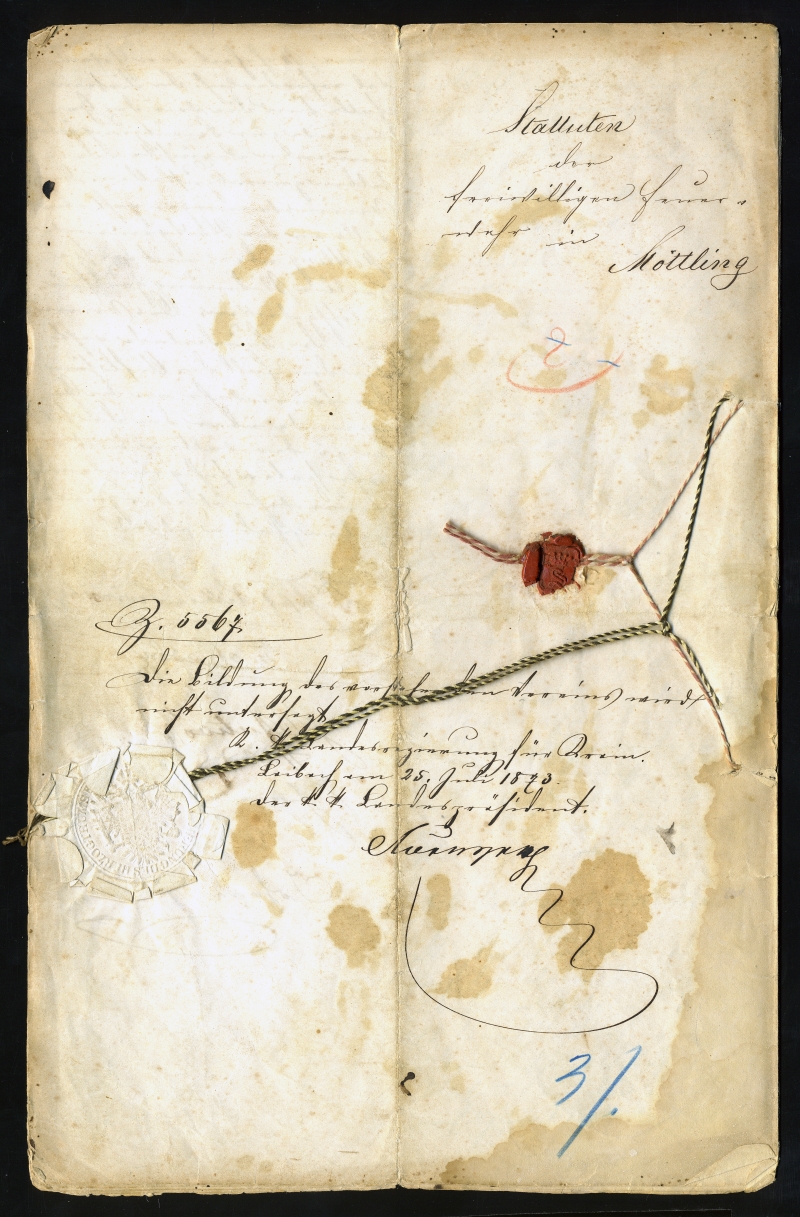 Statuten
der
freiwilligen Feuer-
wehr in
Möttling
Z. 5567
Die Bildung des vorstehenden Vereins wird
nicht untersagt
K. k. Landesregierung für Krain.
Laibach am 25. Juli 1873.
Der k. k. Landespräsident.
3/.